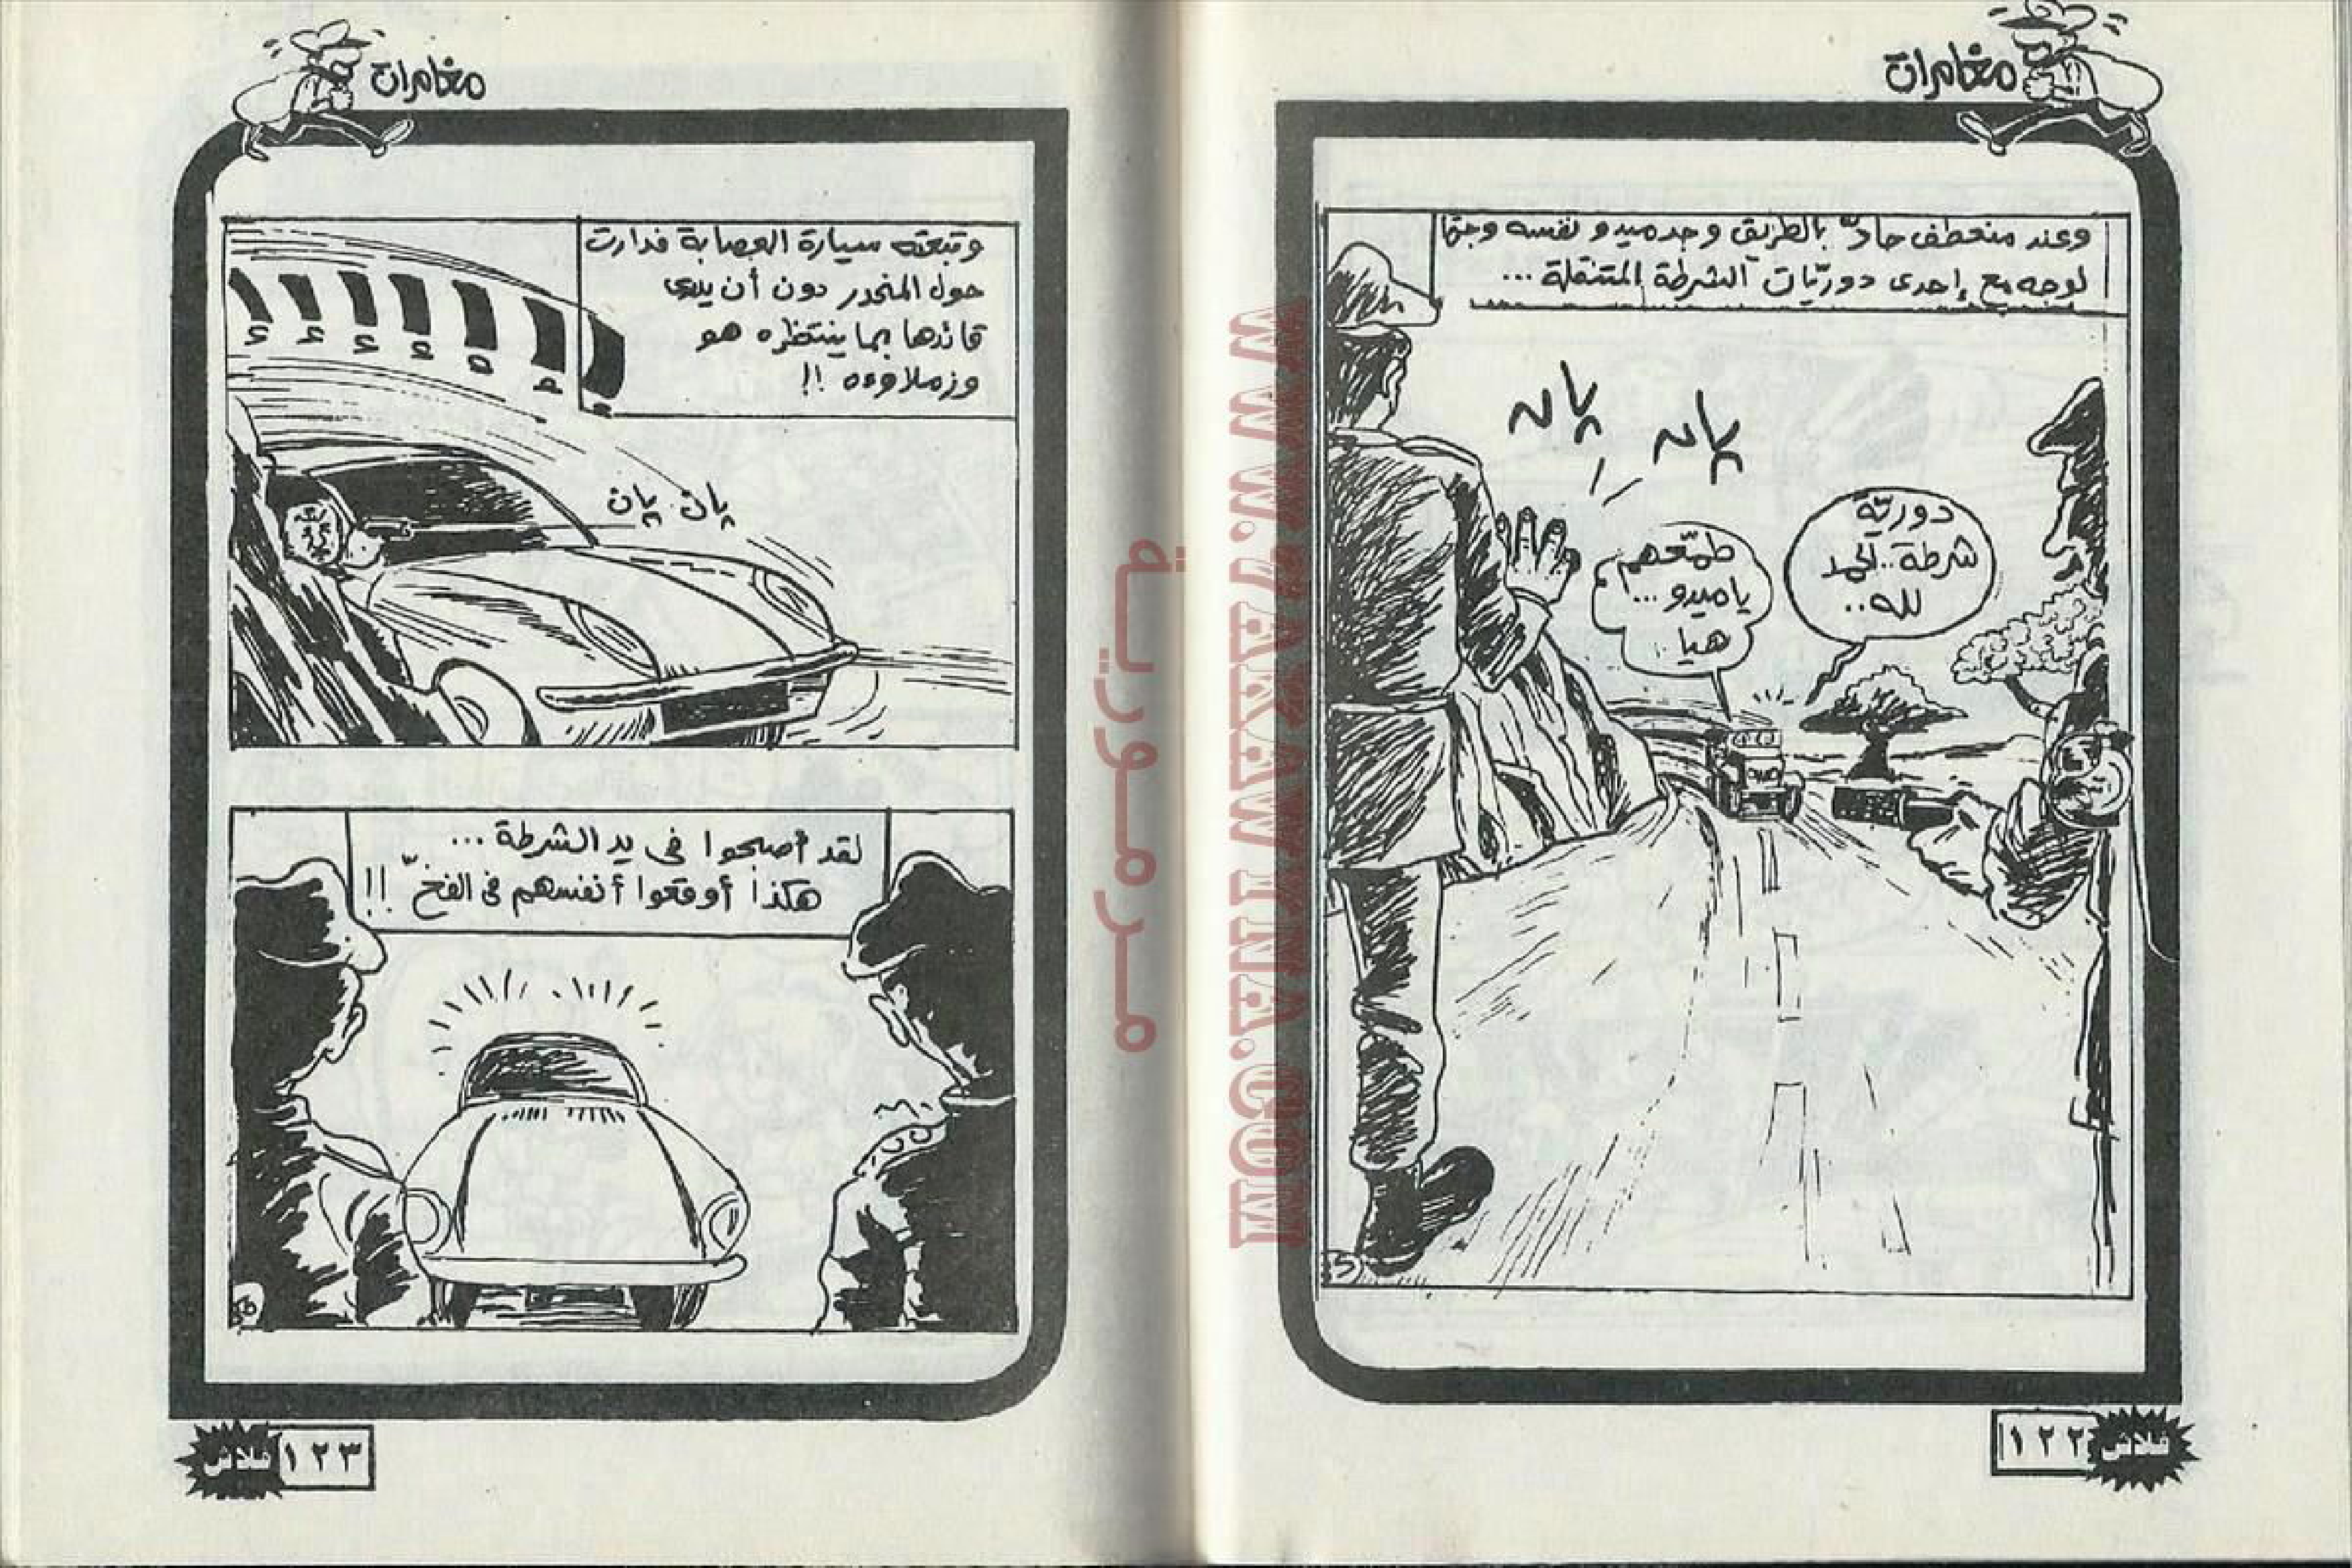 مغامرات
وعند منعطف حادّ بالطريق وجد ميدو نفسه وجهًا
لوجه مع إحدى دوريّات الشرطة المتنقلة...
يان
يان
دوريّة
شرطة..الحمد
لله..
طمّعهم
يا ميدو...
هيا
١٢٢
فلاش
مغامرات
وتبعته سيارة العصابة فدارت
حول المنحدر دون أن يدرى
قائدها بما ينتظره هو
وزملاوءه !!
يان يان
لقد أصبحوا فى يد الشرطة...
هكذا أوقعوا أنفسهم فى الفخّ !!
١٢٣
فلاش
مرمورية